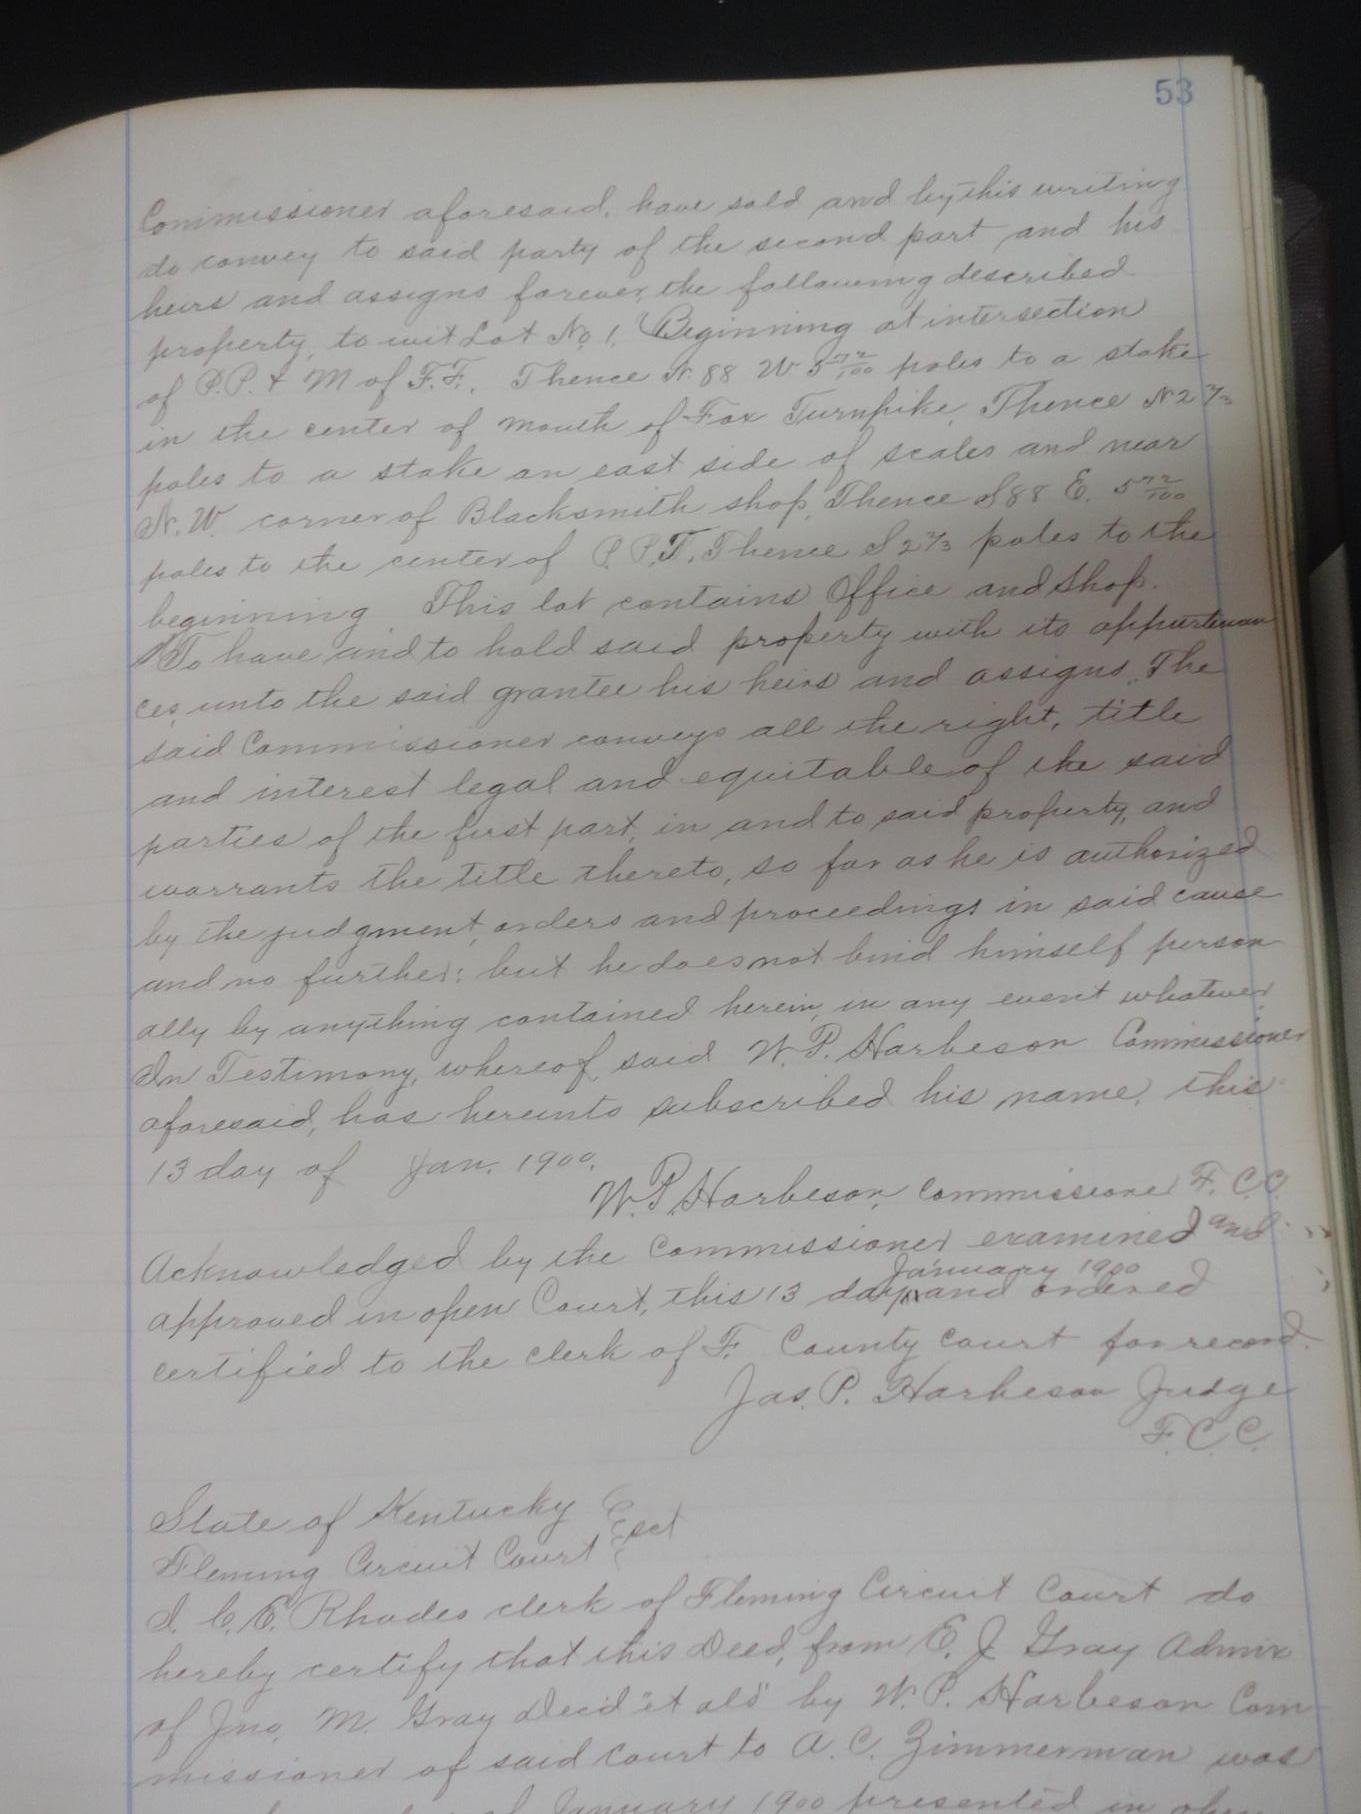 53
Commissioner aforesaid, have sold and by this writing
do convey to said party of the second part and his
heirs and assigns forever, the following described
property, to wit Lot No. 1. Beginning at intersection
of P.P. & M of F.F. Thence N. 88 W 5 72/100 poles to a stake
in the center of mouth of Fox Turnpike, Thence N 2 2/3
poles to a stake on east side of scales and near
N. W. corner of Blacksmith shop, Thence S 88 E. 5 72/100
poles to the center of P.P.T. Thence S 2 2/3 poles to the
beginning This lot contains Office and Shop.
To have and to hold said property with its appurtenan
ces, unto the said grantee his heirs and assigns. The
said Commissioner conveys all the right, title
and interest legal and equitable of the said
parties of the first part, in and to said property, and
warrants the title thereto, so far as he is authorized
by the judgment, orders and proceedings in said cause
and no further; but he does not bind himself person
ally by anything contained herein, in any event whatever
In Testimony, whereof, said W. P. Harbeson Commissioner
aforesaid, has hereunto subscribed his name, this
13 day of Jan. 1900.
W. P. Harbeson, Commissioner F. C. C.
Acknowledged by the Commissioner examined and
January 1900
approved in open Court, this 13 day and ordered
certified to the clerk of F. County Court for record.
Jas. P. Harbeson Judge
F. C. C.
State of Kentucky
Sct
Fleming Circuit Court
I, C. E. Rhodes clerk of Fleming Circuit Court do
hereby certify that this Deed, from E. J. Gray Admix
of Jno. M. Gray Decd "et als" by W. P. Harbeson Com
missioner of said Court to A. C. Zimmerman was
January 1900 presented in